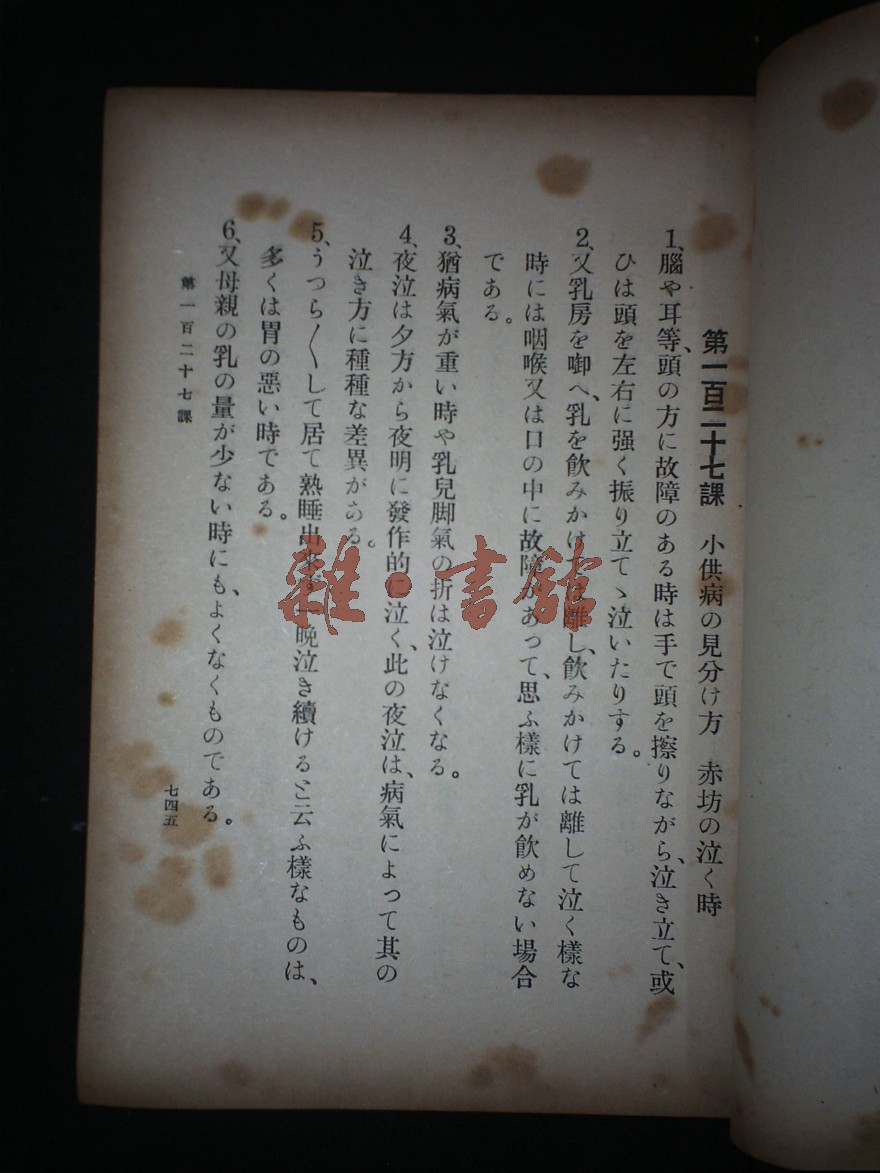 第一百二十七課　小供病の見分け方　赤坊の泣く時
1、腦や耳等、頭の方に故障のある時は手で頭を擦りながら、泣き立て、或
ひは頭を左右に强く振り立てゝ泣いたりする。
2、又乳房を啣へ、乳を飮みかけては離し、飮みかけては離して泣く樣な
時には咽喉又は口の中に故障があって、思ふ樣に乳が飮めない場合
である。
3、猶病氣が重い時や乳兒脚氣の折は泣けなくなる。
4、夜泣は夕方から夜明に發作的に泣く、此の夜泣は、病氣によって其の
泣き方に種種な差異がある。
5、うつら〱して居て熟睡出來ず一晩泣き續けると云ふ樣なものは、
多くは胃の惡い時である。
6、又母親の乳の量が少ない時にも、よくなくものである。
第一百二十七課
七四五
雜·書館